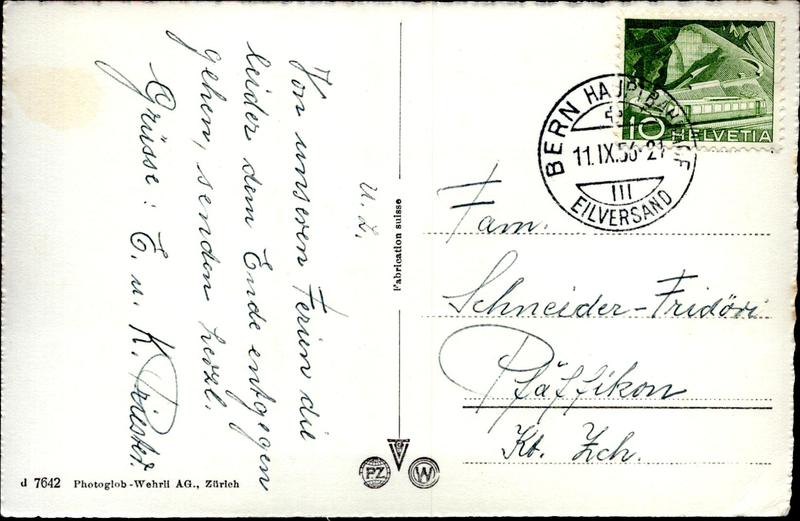 Von unseren Ferien die
leider dem Ende entgegen
gehen, senden herzl.
Grüsse: E. u. K. Priester.
U. Z.
Fabrication suisse
BERN HAUPTBAHNHOF
11.IX.56-21
III
EILVERSAND
10 HELVETIA
Fam.
Schneider-Fridöri
Pfäffikon
Kt. Zch.
PZ
W
d 7642 Photoglob-Wehrli AG., Zürich